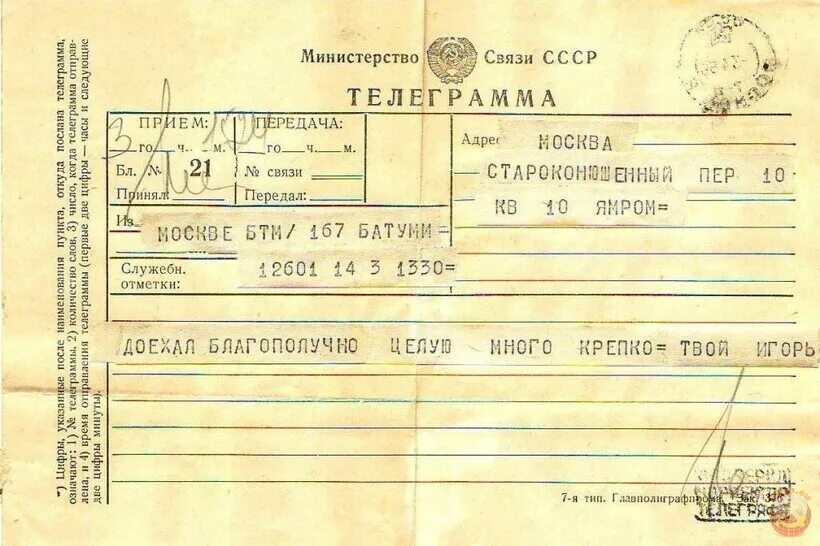 Министерство Связи СССР
ТЕЛЕГРАММА
ПРИЕМ:
3 го ч. м.
Бл. № 21
Принял:
ПЕРЕДАЧА:
го ч. м.
№ связи
Передал:
Адрес
МОСКВА
СТАРОКОНЮШЕННЫЙ ПЕР 10
КВ 10 ЯМРОМ=
Из
МОСКВЕ БТМ/ 167 БАТУМИ =
Служебн.
отметки:
12601 14 3 1330=
ДОЕХАЛ БЛАГОПОЛУЧНО ЦЕЛУЮ МНОГО КРЕПКО= ТВОЙ ИГОРЬ
*) Цифры, указанные после наименования пункта, откуда послана телеграмма,
означают: 1) № телеграммы, 2) количество слов, 3) число, когда телеграмма отправ-
лена, и 4) время отправления телеграммы (первые две цифры — часы и следующие
две цифры минуты).
7-я тип. Главполиграфпрома. Зак.
ТЕЛЕГРАФ